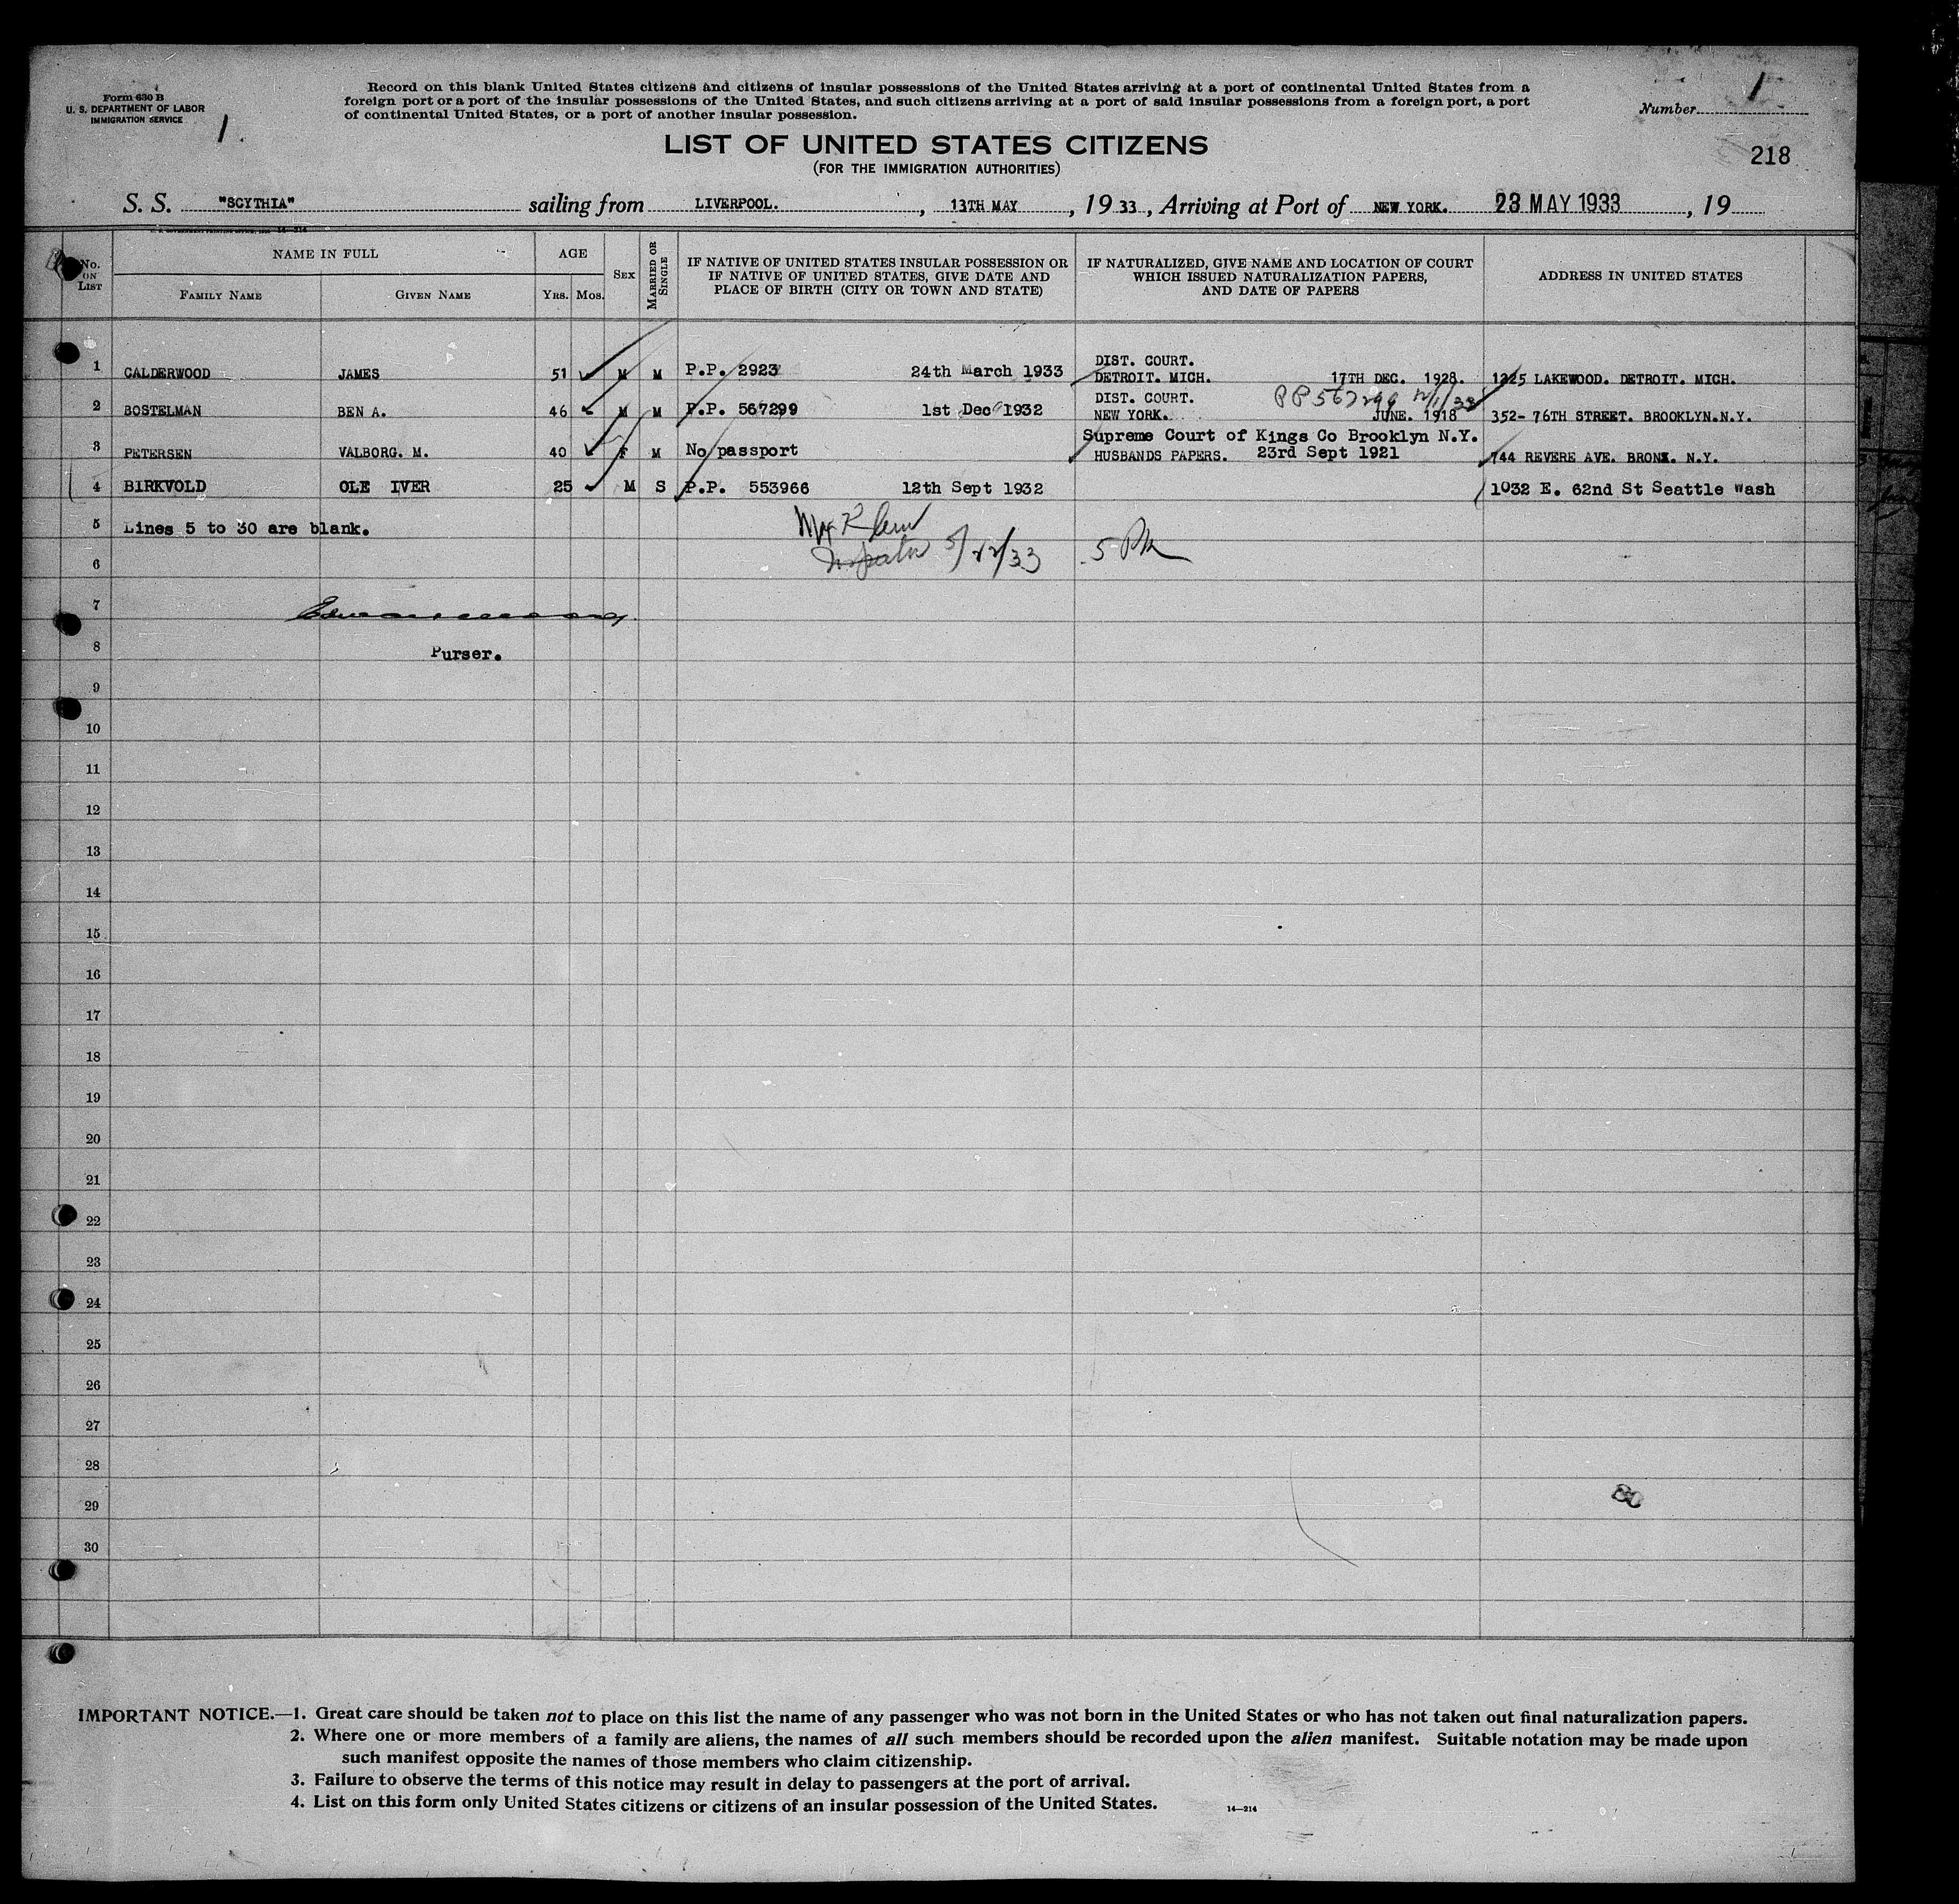 Form 630 B
U. S. DEPARTMENT OF LABOR
IMMIGRATION SERVICE
1.
Record on this blank United States citizens and citizens of insular possessions of the United States arriving at a port of continental United States from a
foreign port or a port of the insular possessions of the United States, and such citizens arriving at a port of said insular possessions from a foreign port, a port
of continental United States, or a port of another insular possession.
Number 1
LIST OF UNITED STATES CITIZENS
(FOR THE IMMIGRATION AUTHORITIES)
218
S. S. "SCYTHIA" sailing from LIVERPOOL. , 13TH MAY , 19 33 , Arriving at Port of NEW YORK. 23 MAY 1933 , 19
No. ON LIST
NAME IN FULL
FAMILY NAME GIVEN NAME
AGE
YRS. MOS.
SEX
MARRIED OR SINGLE
IF NATIVE OF UNITED STATES INSULAR POSSESSION OR
IF NATIVE OF UNITED STATES, GIVE DATE AND
PLACE OF BIRTH (CITY OR TOWN AND STATE)
IF NATURALIZED, GIVE NAME AND LOCATION OF COURT
WHICH ISSUED NATURALIZATION PAPERS,
AND DATE OF PAPERS
ADDRESS IN UNITED STATES
DIST. COURT.
1 CALDERWOOD JAMES 51 M M P.P. 2923 24th March 1933 DETROIT. MICH. 17TH DEC. 1928. 1325 LAKEWOOD. DETROIT. MICH.
DIST. COURT. PP 567299 12/1/32
2 BOSTELMAN BEN A. 46 M M P.P. 567299 1st Dec 1932 NEW YORK. JUNE. 1918 352- 76TH STREET. BROOKLYN.N.Y.
Supreme Court of Kings Co Brooklyn N.Y.
3 PETERSEN VALBORG. M. 40 F M No passport HUSBANDS PAPERS. 23rd Sept 1921 744 REVERE AVE. BRONX. N.Y.
4 BIRKVOLD OLE IVER 25 M S P.P. 553966 12th Sept 1932 1032 E. 62nd St Seattle Wash
5 Lines 5 to 30 are blank.
6 Inspector 5/22/33 5 PM
7
8 Purser.
9
10
11
12
13
14
15
16
17
18
19
20
21
22
23
24
25
26
27
28
29
30
IMPORTANT NOTICE.—1. Great care should be taken not to place on this list the name of any passenger who was not born in the United States or who has not taken out final naturalization papers.
2. Where one or more members of a family are aliens, the names of all such members should be recorded upon the alien manifest. Suitable notation may be made upon
such manifest opposite the names of those members who claim citizenship.
3. Failure to observe the terms of this notice may result in delay to passengers at the port of arrival.
4. List on this form only United States citizens or citizens of an insular possession of the United States.
14—214